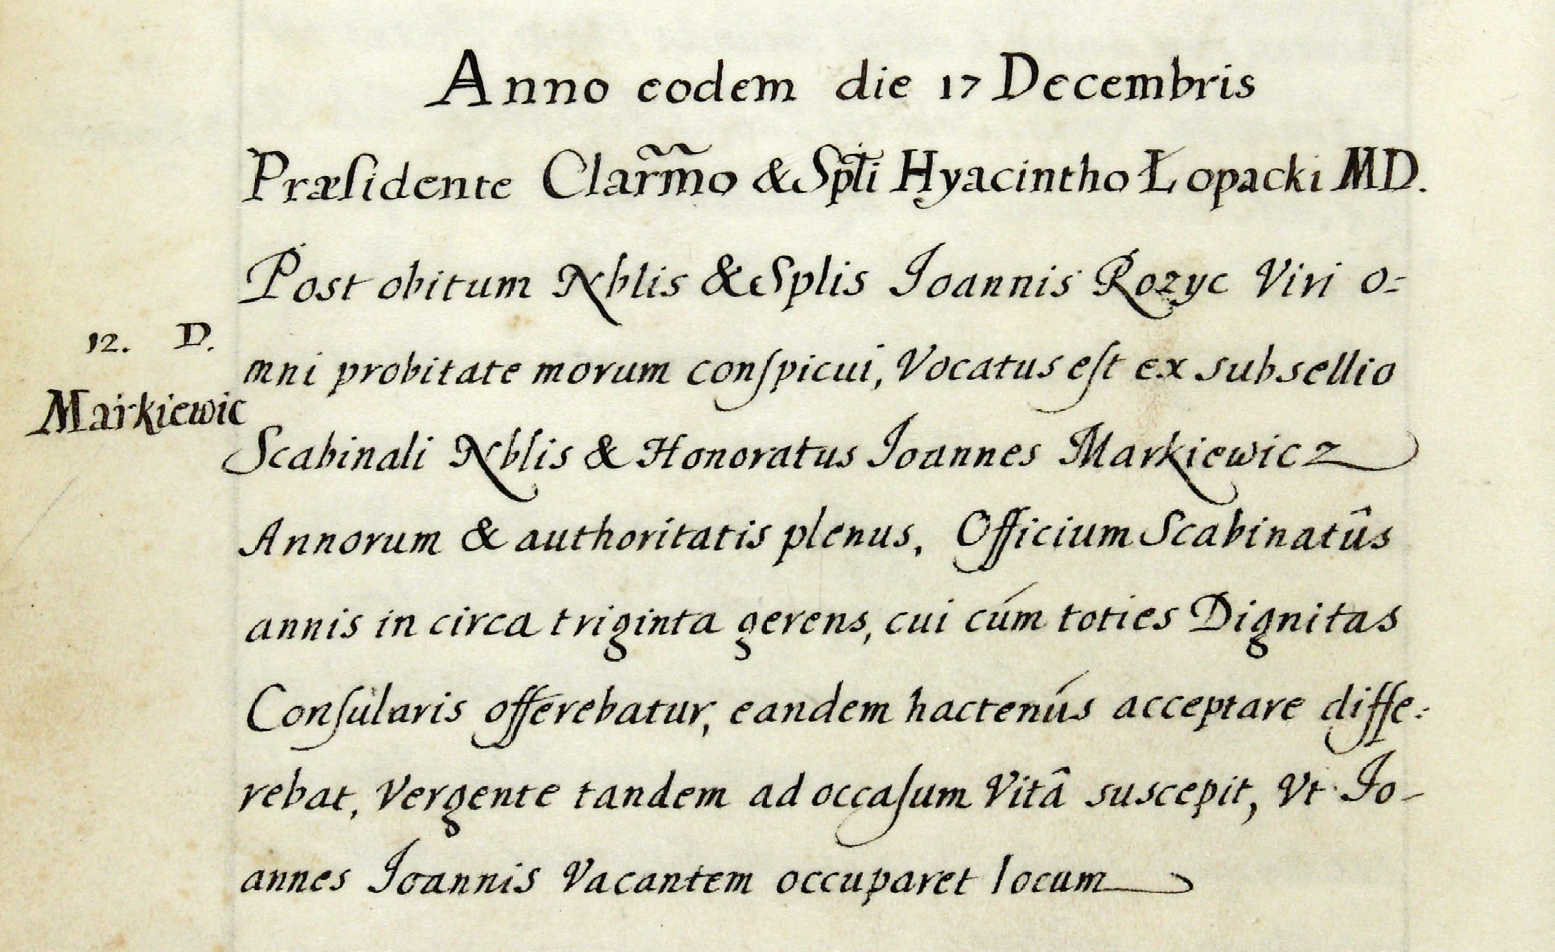 Anno eodem die 17 Decembris
Præſidente Clarm̃m̃o & Sptĩi Hyacintho Łopacki MD.
Post obitum Nblis & Splis Ioannis Rozyc Viri o=
mni probitate morum conſpicui, Vocatus eſt ex subsellio
12. D.
Markiewic
Scabinali Nblis & Honoratus Ioannes Markiewicz
Annorum & authoritatis plenus, Officium Scabinatûs
annis in circa triginta gerens, cui cúm toties Dignitas
Conſularis offerebatur, eandem hactenús acceptare diffe=
rebat, Vergente tandem ad occaſum Vitâ suscepit, Vt Io-
annes Ioannis Vacantem occuparet locum